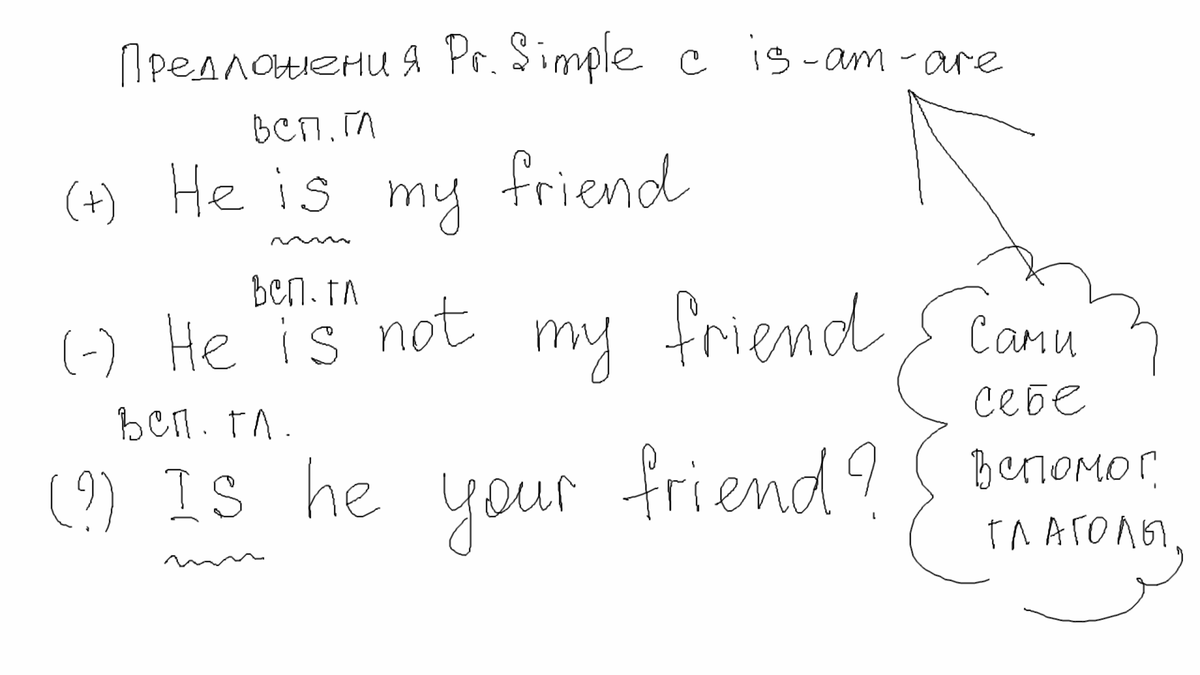 Предложения Pr. Simple с is-am-are
всп. гл
(+) He is my friend
всп. гл
(-) He is not my friend
всп. гл.
(?) Is he your friend?
Сами
себе
вспомог.
глаголы,